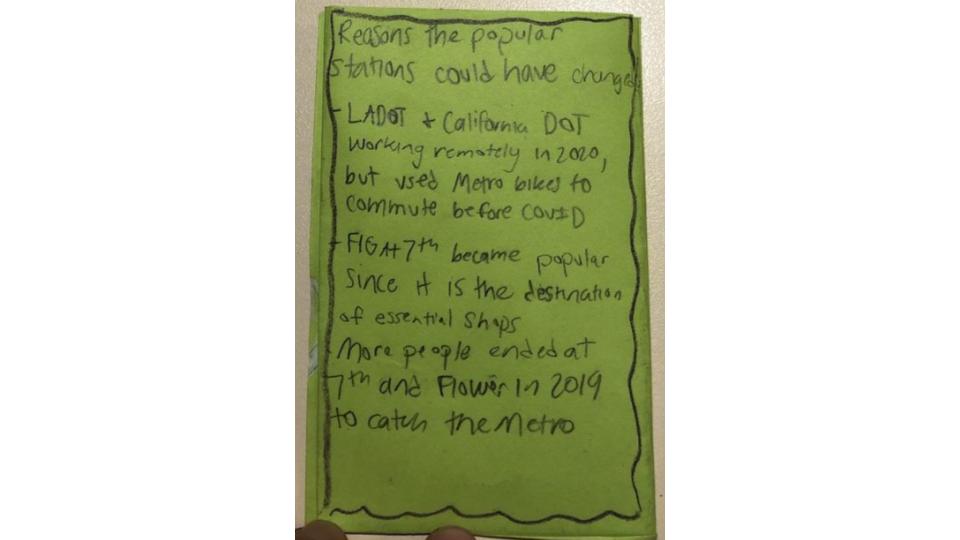 Reasons the popular
stations could have changed
- LADOT + California DOT
working remotely in 2020,
but used Metro bikes to
commute before COVID
- FIGAt7th became popular
since it is the destination
of essential shops
More people ended at
7th and Flower in 2019
to catch the Metro